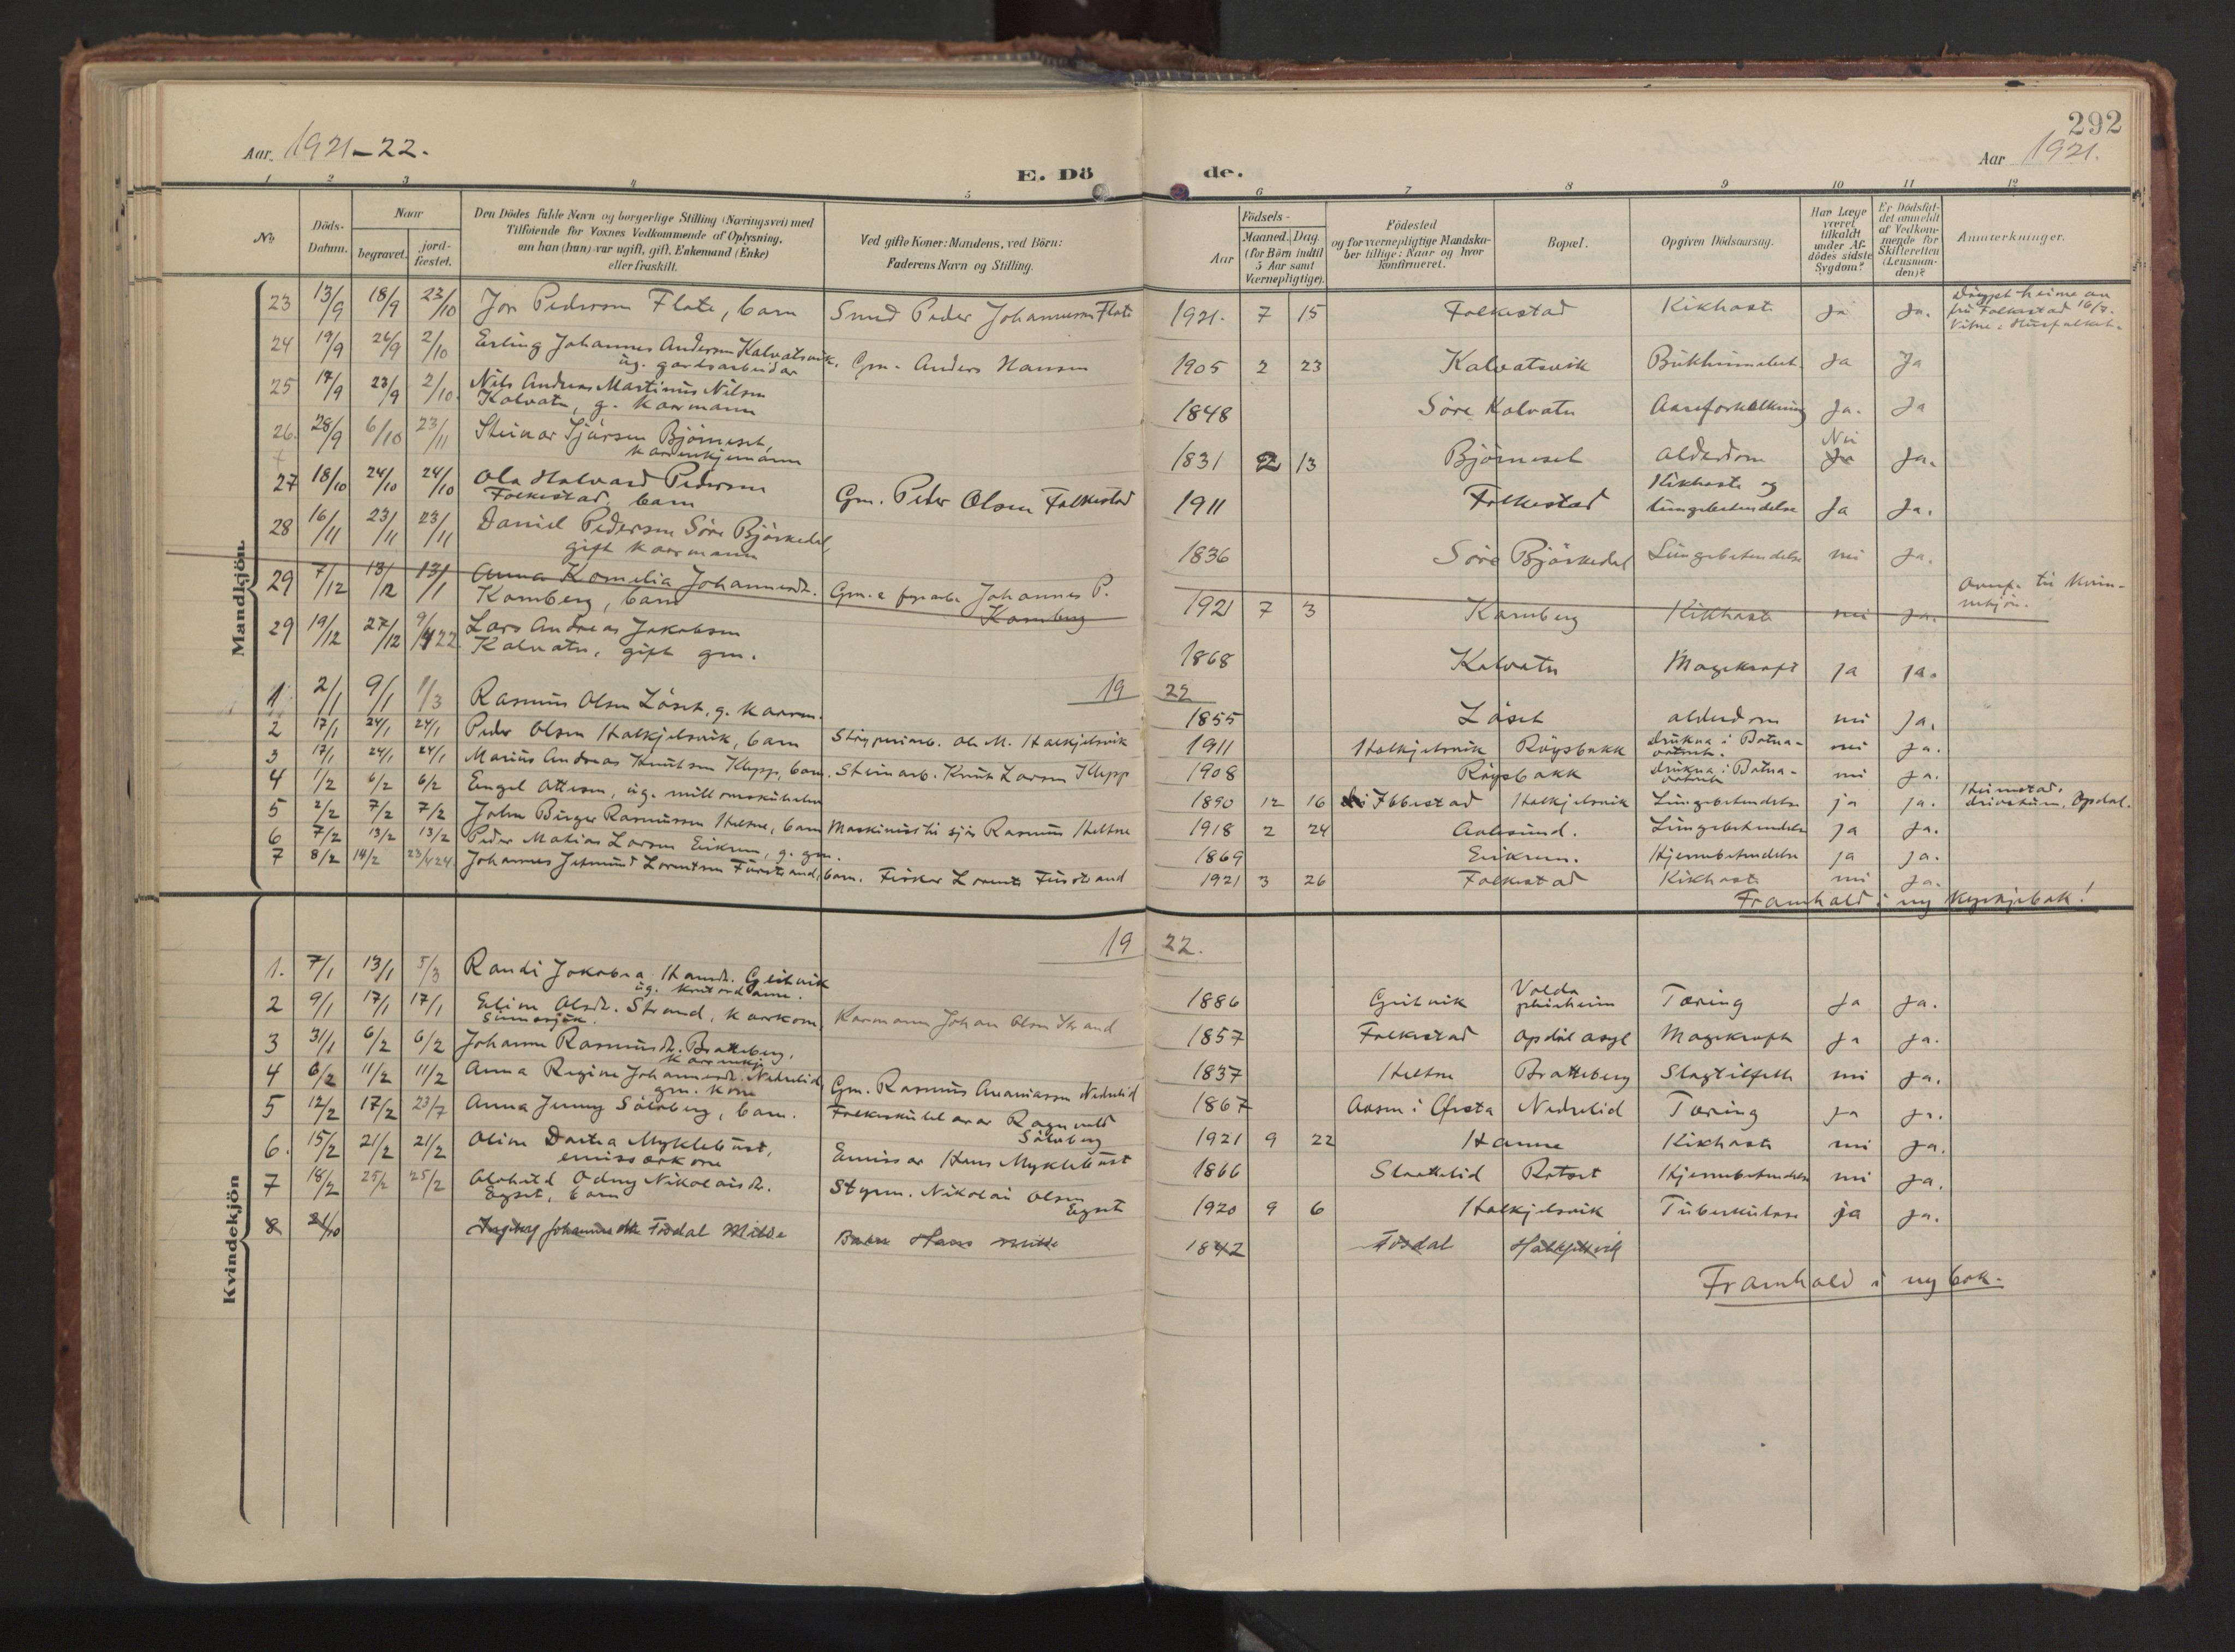 292
Aar 1921-22.
Aar 1921.
E. Dö de.
1 2 3 4 5 6 7 8 9 10 11 12
No.
Döds-Datum.
Naar
begravet.
jord-fæstet.
Den Dödes fulde Navn og borgerlige Stilling (Næringsvei) med
Tilföiende for Voxnes Vedkommende af Oplysning,
om han (hun) var ugift, gift, Enkemand (Enke)
eller fraskilt.
Ved gifte Koner: Mandens, ved Börn:
Faderens Navn og Stilling.
Födsels-
Aar
Maaned. Dag.
(for Börn indtil
5 Aar samt
Værnepligtige).
Födested
og for værnepligtige Mandska-
ber tillige: Naar og hvor
konfirmeret.
Bopæl.
Opgiven Dödsaarsag.
Har Læge
været
tilkaldt
under Af-
dödes sidste
Sygdom?
Er Dödsfal-
det anmeldt
af Vedkom-
mende for
Skifteretten
(Lensman-
den)?
Anmærkninger.
Mandkjön
23 13/9 18/9 23/10 Jon Pedersen Flate, barn Smed Peder Johannessen Flate 1921. 7 15 Folkestad Kikhoste Ja Ja. Döypt heime av
fru Folkestad 16/7.
24 19/9 26/9 2/10 Erling Johannes Andersen Kalvatsvik,
ug. gardsarbeidar Gm. Anders Hansen 1905 2 23 Kalvatsvik Ja Ja
25 17/9 23/9 2/10. Nils Andreas Martinus Nilsen
Kalvatn, g. kaarmann 1848 Søre Kalvatn Aareforkalkning Ja. Ja
26. 28/9 6/10 23/11 Steinar Sjursen Björneset,
kaarenkjemann 1831 2 13 Björneset Alderdom Nei Ja Ja.
27 18/10 24/10 24/10 Ola Halvard Pedersen
Folkestad, barn Gm. Peder Olsen Folkestad 1911 Folkestad Kikhoste og
lungebetendelse Ja Ja.
28 16/11 23/11 23/11 Daniel Pedersen Søre Björkedal,
gift kaarmann 1836 Søre Björkedal Lungebetendelse nei Ja.
29 7/12 13/12 13/1 Anna Kornelia Johannesdr.
Kornberg, barn Johannes P.
Kornberg 1921 7 3 Kornberg Kikhoste nei Ja. Overf. til kvin-
nekjön.
29 19/12 27/12 9/4 22. Lars Andreas Jakobsen
Kalvatn, gift gm. 1868 Kalvatn Magekraft ja ja.
19 22
1 2/1 9/1 1/3 Rasmus Olsen Löset, g. kaarm. 1855 Löset alderdom nei Ja.
2 17/1 24/1 24/1 Peder Olsen Halkjelsvik, barn Ole M. Halkjelsvik 1911 Halkjelsvik Röysbakk drukna i Botna-
vatnet. nei Ja.
3 17/1 24/1 24/1 Marius Andreas Knutsen Klepp, barn. Steinarb. Knut Larsen Klepp 1908 Röysbakk drukna i Botna-
vatnet nei Ja.
4 1/2 6/2 6/2 Engel Ottesen, ug. 1890 12 16 i Ibbestad Halkjelsvik Lungebetendelse ja ja. Heimstad,
Opdal.
5 2/2 7/2 7/2 John Birger Rasmussen Heltne, barn Maskinist til sjös Rasmus Heltne 1918 2 24 Aalesund. Lungebetendelse ja Ja.
6 7/2 13/2 13/2 Peder Matias Larsen Eikrem, g. gm. 1869 Eikrem. Hjernebetendelse ja ja.
7 8/2 14/2 23/4 24. Johannes Jetmund Lorentsen Furstrand, barn. Fiskar Lorents Furstrand 1921 3 26 Folkestad Kikhoste nei Ja.
Framhald i ny kyrkjebok!
19 22.
Kvindekjön
1. 7/1 13/1 5/3 Randi Jakobea Hansdr. Geitvik
ug. 1886 Geitvik Volda
Tæring Ja Ja.
2 9/1 17/1 17/1 Eline Olsdr. Strand, kaarkone,
sinnesjuk. Kaarmann Johan Olsen Strand 1857 Folkestad Opdöl asyl Magekraft Ja Ja.
3 31/1 6/2 6/2 Johanne Rasmusdr. Bratteberg,
kaarenkje 1837 Heltne Bratteberg Slagtilfelle nei Ja.
4 6/2 11/2 11/2 Anna Regine Johannesdr. Nedrelid,
gm. kone Gm. Rasmus Ananiassen Nedrelid 1867 Aasen i Ørsta Nedrelid Tæring Ja Ja.
5 12/2 17/2 23/7 Anna Jenny Sölvberg, barn. Folkeskulelærar Ragnvald
Sölvberg 1921 9 22 Hamre Kikhoste nei Ja.
6. 15/2 21/2 21/2 Oline Dortea Myklebust,
emissærkone Emissær Hans Myklebust 1866 Slettelid Rotset Hjernebetendelse nei Ja.
7 18/2 25/2 25/2 Alvhild Odny Nikolaisdr.
Egset, barn Styrm. Nikolai Olsen
Egset 1920 9 6 Halkjelsvik Tuberkulose ja Ja.
8 21/10 Johannesdtr Fosdal Milde Hans Milde 1842 Fosdal Halkjelsvik
Framhald i ny bok.